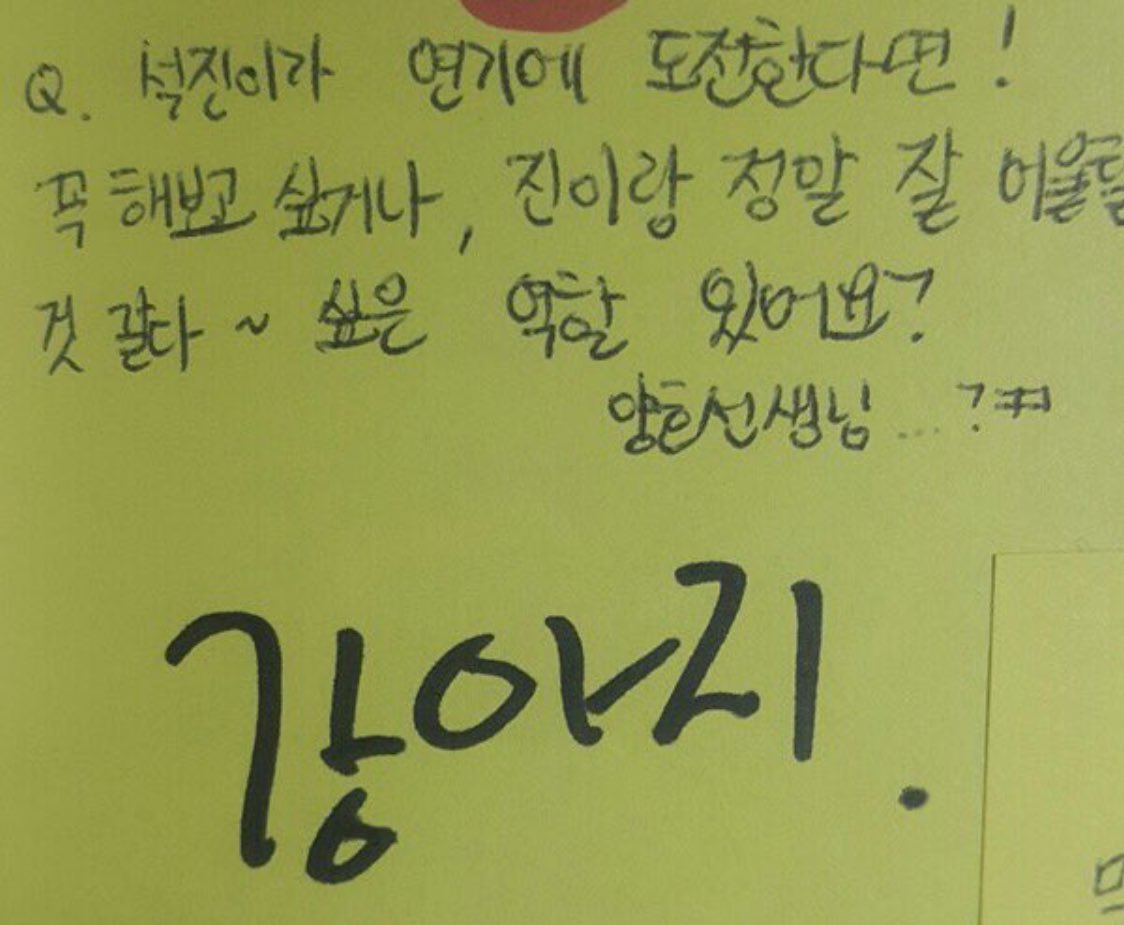 Q. 석진이가 연기에 도전한다면!
꼭 해보고 싶거나, 진이랑 정말 잘 어울릴
것 같다 ~ 싶은 역할 있어요?
양호선생님 ...?ㅋㅋ
강아지.